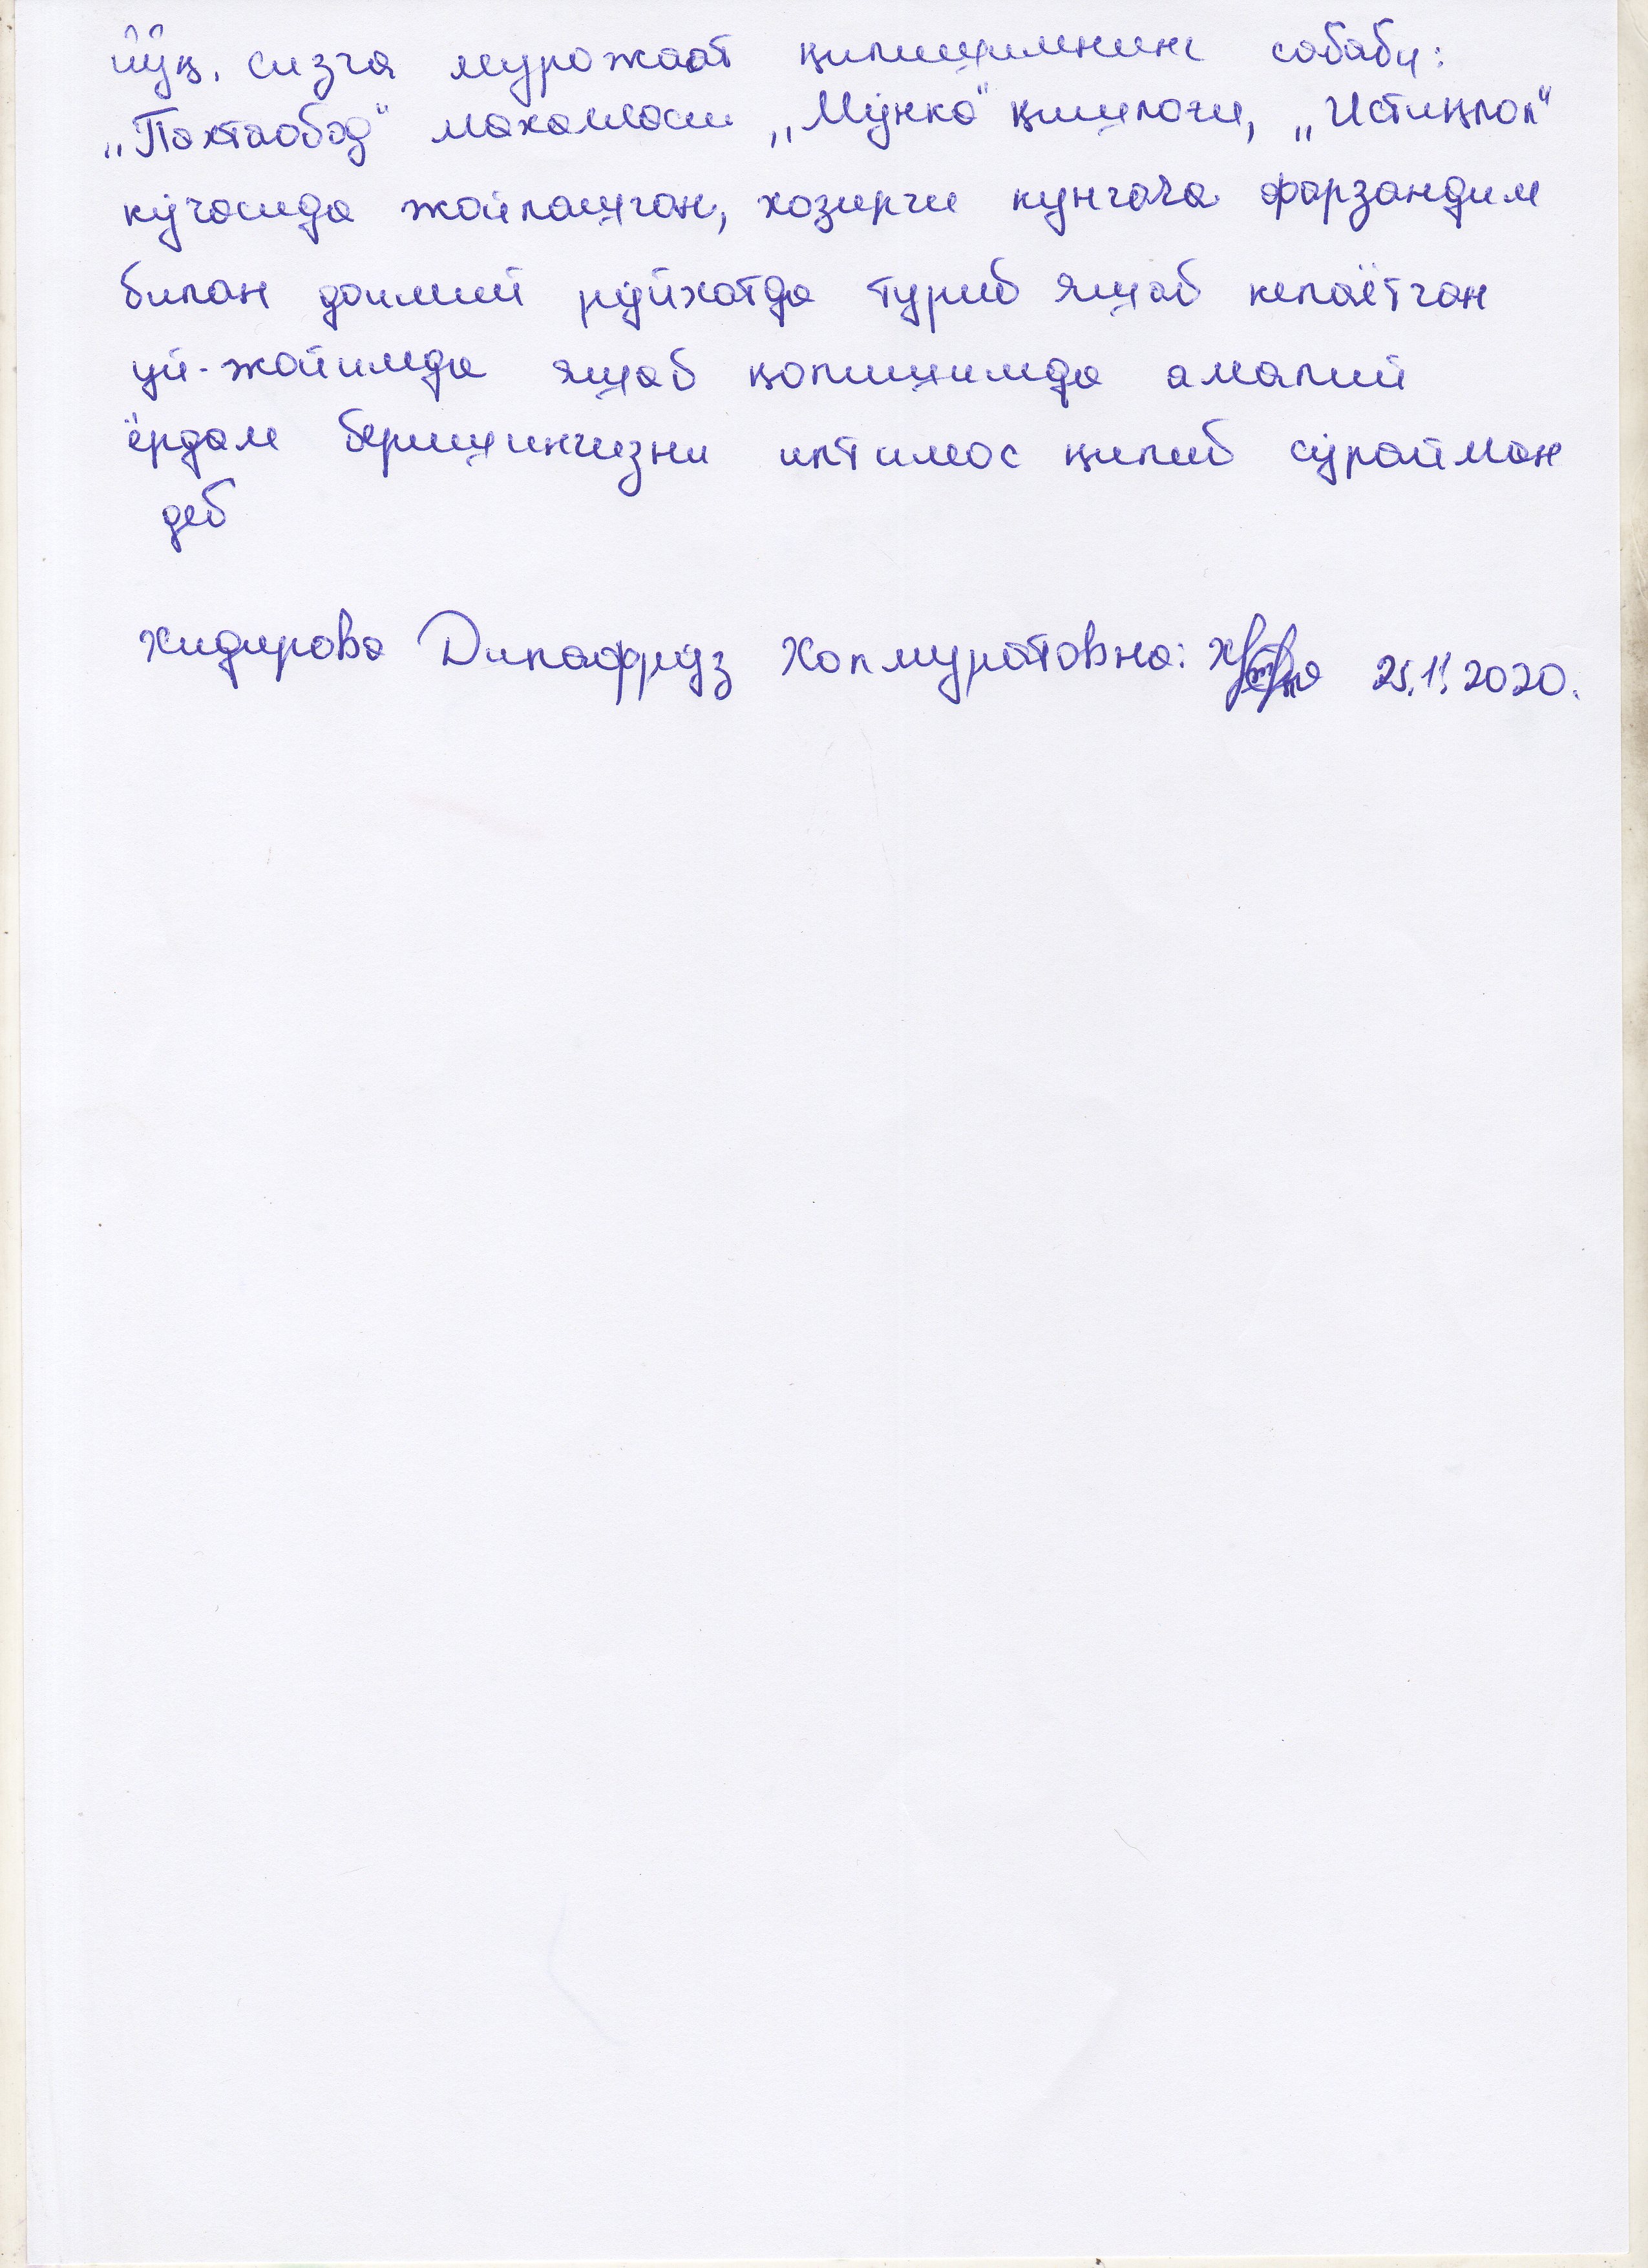 йўқ. сизга мурожаат қилишимнинг сабаби:
„Пахтаобод" махалласи „Мўнка" қишлоғи, „Истиқлол"
кўчасида жойлашган, хозирги кунгача фарзандим
билан доимий рўйхатда туриб яшаб келаётган
уй-жойимда яшаб қолишимда амалий
ёрдам беришингизни илтимос қилиб сўрайман
деб
Хидирова Дилафрўз Холмуратовна: 25.11.2020.